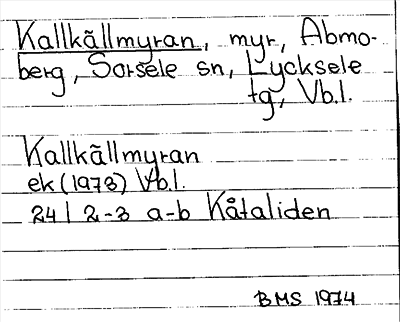 Kallkällmyran, myr, Abmo-
berg, Sorsele sn, Lycksele
tg, Vb.l.
Kallkällmyran
ek (1973) Vb.l.
24I 2-3 a-b Kåtaliden
BMS 1974